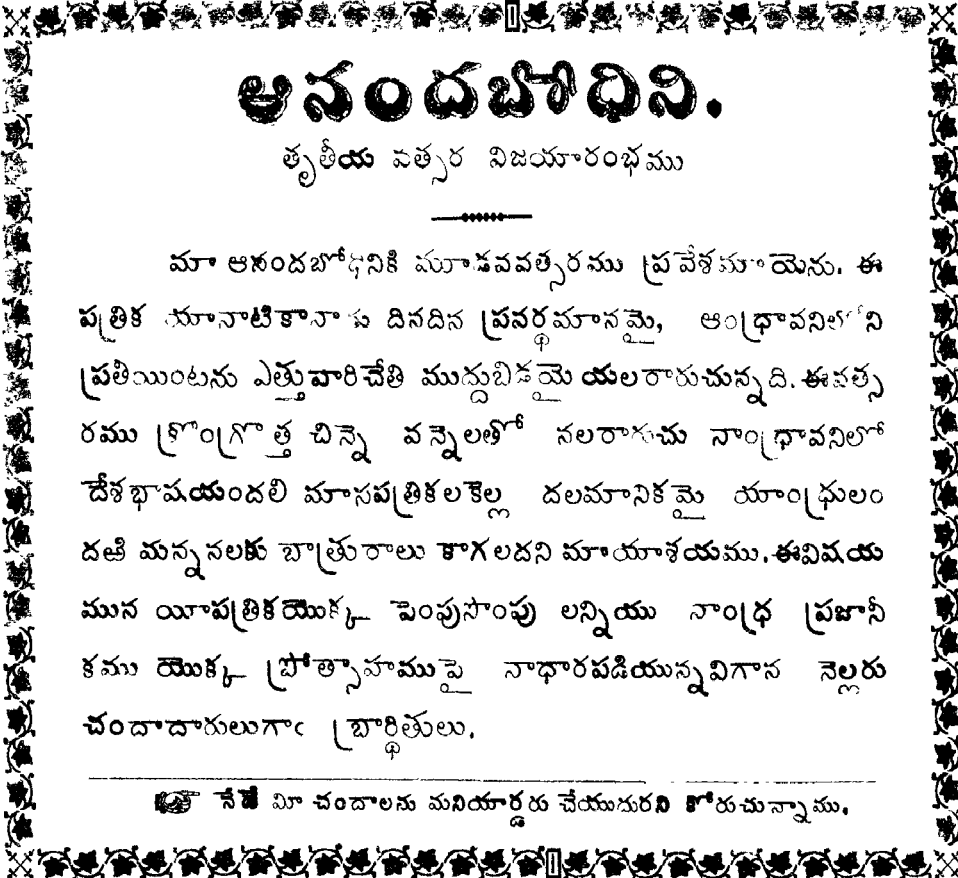 ఆనందబోధిని.
తృతీయ వత్సర విజయారంభము
మా ఆనందబోధనికి మూడవవత్సరము ప్రవేశమాయెను. ఈ
పత్రిక యానాటికానాకు దినదిన ప్రవర్థమానమై, ఆంధ్రావనిలోని
ప్రతియింటను ఎత్తువారిచేతి ముద్దుబిడ్డయై యలరారుచున్నది. ఈవత్స
రము క్రొంగ్రొత్త చిన్నె వన్నెలతో నలరారుచు నాంధ్రావనిలో
దేశభాషయందలి మాసపత్రికలకెల్ల దలమానికమై యాంధ్రులం
దఱి మన్ననలకు బాత్రురాలు కాగలదని మాయాశయము. ఈవిషయ
మున యీపత్రికయొక్క పెంపుసొంపు లన్నియు నాంధ్ర ప్రజానీ
కము యొక్క ప్రోత్సాహముపై నాధారపడియున్నవిగాన నెల్లరు
చందాదారులుగాఁ బ్రార్థితులు.
నేడే మీ చందాలను మనియార్డరు చేయుదురని కోరుచున్నాము.